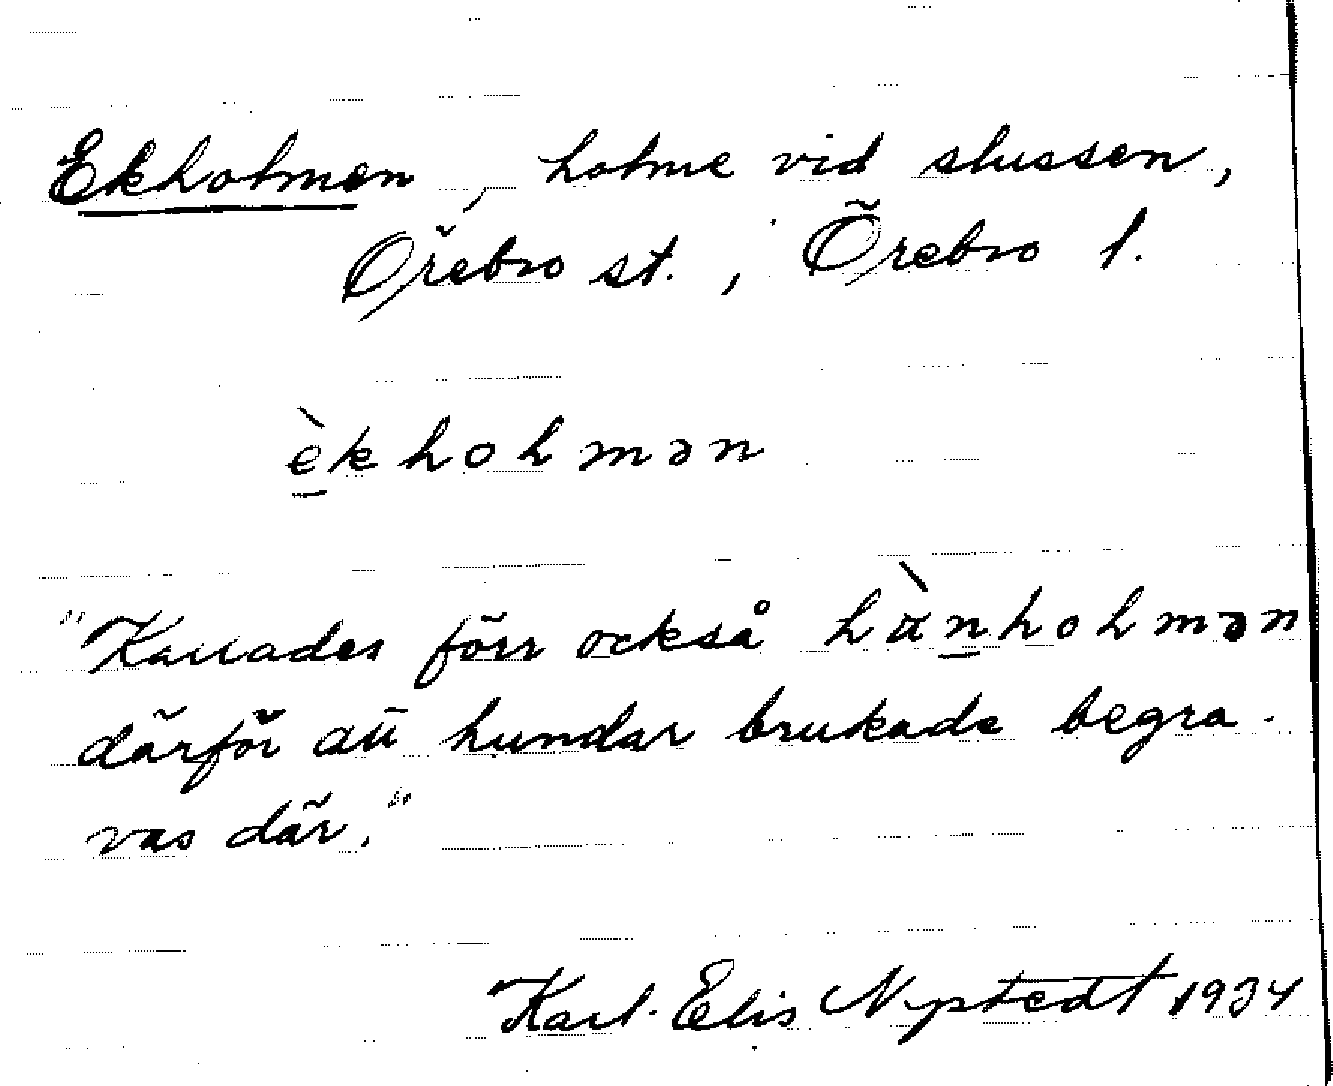 Ekholmen, holme vid slussen,
Örebro st., Örebro l.
èkholmən
"Kallades förr också hùnholmən
därför att hundar brukade begra-
vas där."
Karl-Elis Nystedt 1934